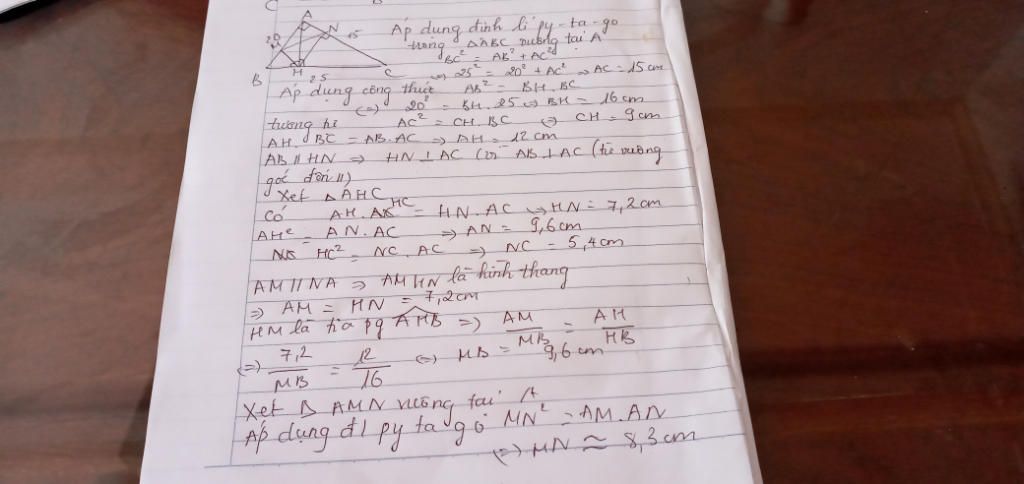 C
A
N
20
15
M
B
H
25
C
Áp dụng định lí py-ta-go
trong △ABC vuông tại A
BC² = AB² + AC²
⇔ 25² = 20² + AC² ⇒ AC = 15 cm
Áp dụng công thức AB² = BH. BC
(=) 20² = BH. 25 ⇔ BH = 16 cm
tương tự AC² = CH. BC ⇔ CH = 9 cm
AH. BC = AB. AC ⇒ AH = 12 cm
AB // HN ⇒ HN ⊥ AC (vì AB ⊥ AC (từ vuông
góc đến //)
Xét △AHC
Có AH. HC = HN. AC ⇔ HN = 7,2 cm
AH² = AN. AC ⇒ AN = 9,6 cm
HC² = NC. AC ⇒ NC = 5,4 cm
AM // NA ⇒ AMHN là hình thang
⇒ AM = HN = 7,2 cm
HM là tia pg AHB =) AM/MB = AH/HB
(=) 7,2/MB = 12/16 (=) MB = 9,6 cm
Xét △ AMN vuông tại A
Áp dụng đl py ta go MN² = AM. AN
(=) MN ≈ 8,3 cm